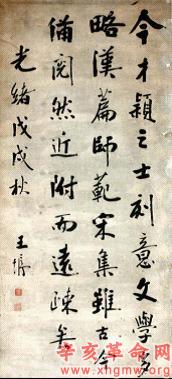 今才穎之士刻意文學多
略漢篇師範宋集雖古今
備閱然近附而遠疎矣
光緒戊戌秋
王塼
辛亥革命网
www.xhgmw.org